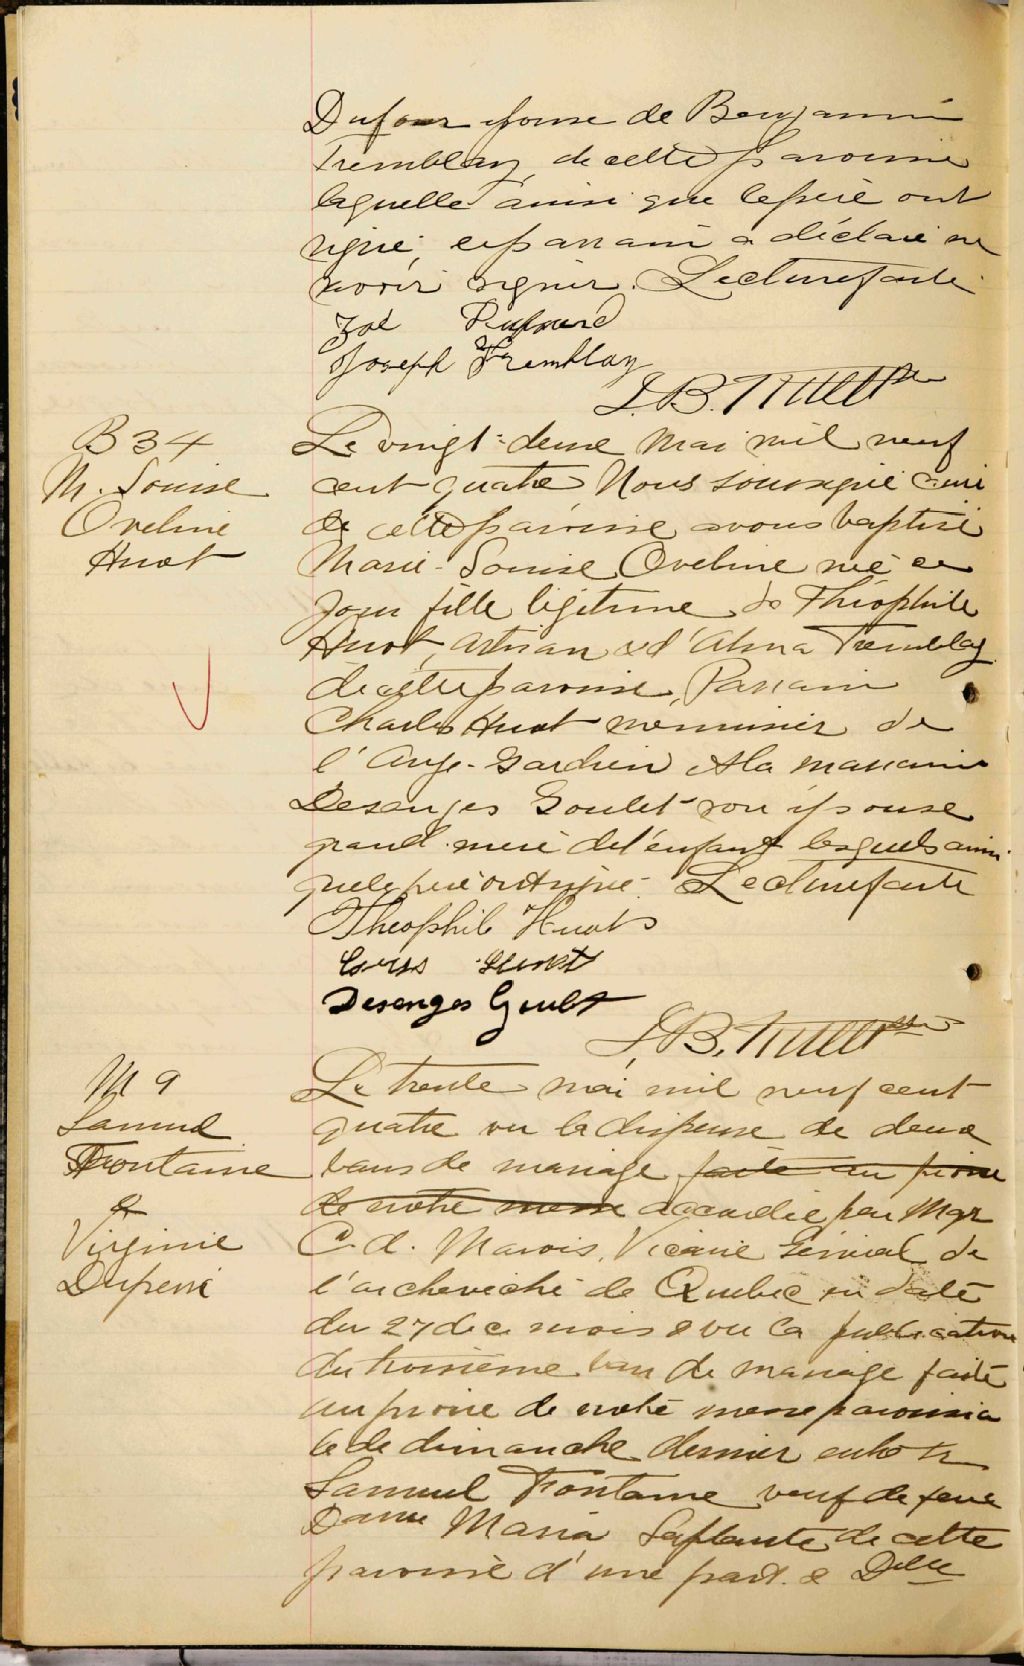 Dufour épouse de Benjamin
Tremblay, de cette paroisse
laquelle ainsi que le père ont
signé, le parrain a déclaré ne
savoir signer. Lecture faite
Zoé Dufour
Joseph Tremblay
J. B. Ptre
B 34
M. Louise
Oveline
Huot
Le vingt-deux Mai mil neuf
cent quatre Nous soussigné curé
de cette paroisse avons baptisé
Marie-Louise Oveline née ce
jour fille légitime de Théophile
Huot, artisan & d'Alma Tremblay
de cette paroisse, Parrain
Charles Huot menuisier de
l'Ange-Gardien & la marraine
Desanges Goulet son épouse
grand-mère de l'enfant lesquels ainsi
que le père ont signé. Lecture faite
Theophile Huot
Huot
Desanges Goulet
J. B. Ptre
M 9
Samuel
Fontaine
&
Virginie
Duperré
Le trente mai mil neuf cent
quatre vu la dispense de deux
bans de mariage faite au prône
de notre messe accordée par Mgr
C. A. Marois, Vicaire Général de
l'archevêché de Québec en date
du 27 de ce mois & vu la publication
du troisième ban de mariage faite
au prône de notre messe paroissia
le de dimanche dernier entre
Samuel Fontaine veuf de feue
Dame Maria Laplante de cette
paroisse d'une part. & Delle